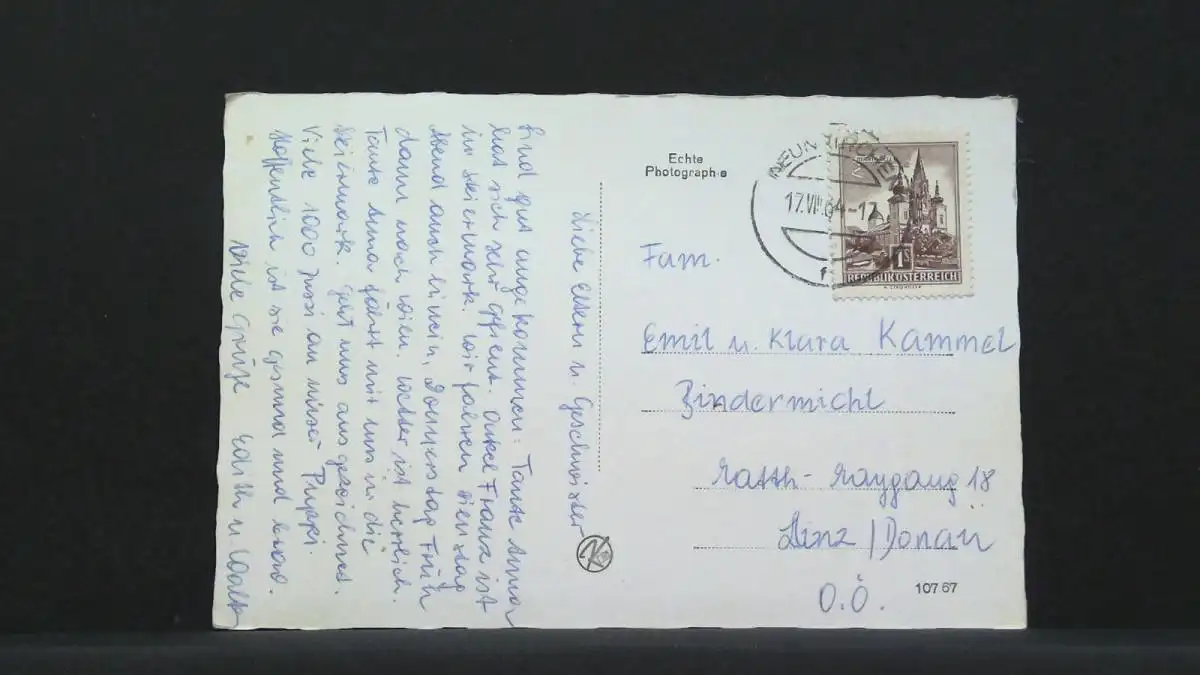 Liebe Eltern u. Geschwister
Sind gut angekommen. Tante Anna
hat sich sehr gefreut. Onkel Franz ist
in Steiermark. Wir fahren Dienstag
Abend auch hinein, Donnerstag Früh
dann nach Wien. Wetter ist herrlich.
Tante Anna fährt mit uns in die
Steiermark. Geht uns ausgezeichnet.
Viele 1000 Pussi an unser Puppi.
Hoffentlich ist sie gesund und brav.
Viele Grüße Edith u. Walter
Echte
Photographie
NEUNKIRCHEN
17.VIII.64-17
f
2
1S
REPUBLIK ÖSTERREICH
Fam.
Emil u. Klara Kammel
Bindermichl
18
Linz/Donau
O.Ö.
107 67
K